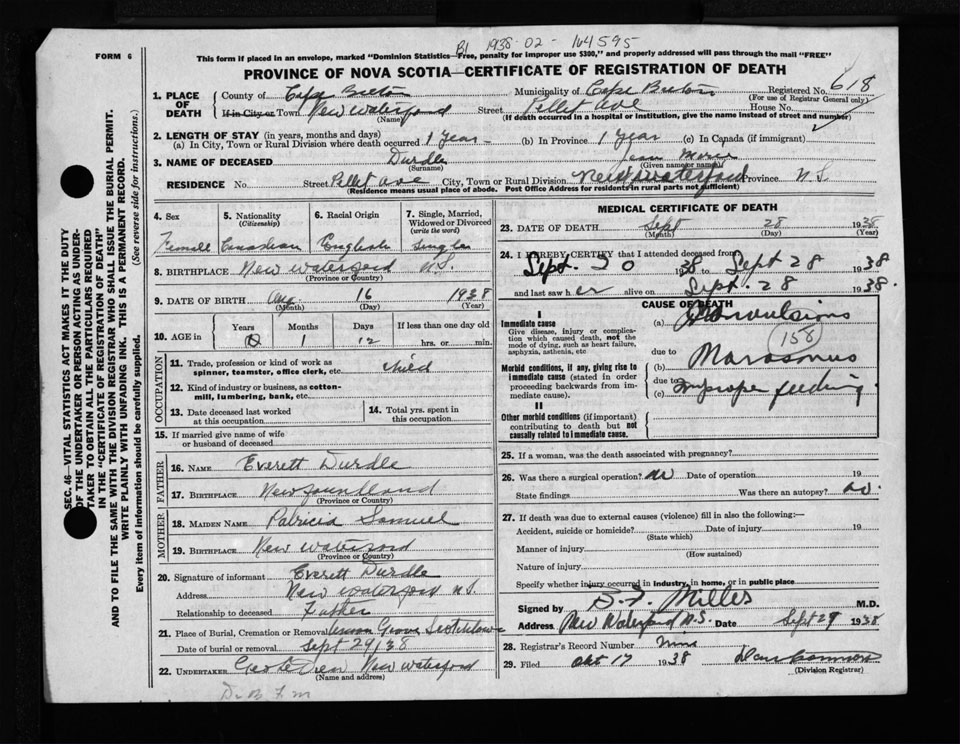 B1 1938-02-164595
FORM 6
This form if placed in an envelope, marked "Dominion Statistics—Free, penalty for improper use $300," and properly addressed will pass through the mail "FREE"
PROVINCE OF NOVA SCOTIA—CERTIFICATE OF REGISTRATION OF DEATH
618
1. PLACE OF DEATH
County of Cape Breton Municipality of Cape Breton Registered No.
(For use of Registrar General only)
If in City or Town New Waterford Street Pellet Ave House No.
(Name) (If death occurred in a hospital or institution, give the name instead of street and number)
2. LENGTH OF STAY (in years, months and days)
(a) In City, Town or Rural Division where death occurred 1 Year (b) In Province 1 Year (c) In Canada (if immigrant)
3. NAME OF DECEASED Durdle Jean
(Surname) (Given name or names)
RESIDENCE No. Street Pellet Ave City, Town or Rural Division New Waterford Province N.S.
(Residence means usual place of abode. Post Office Address for residents in rural parts not sufficient)
4. Sex 5. Nationality (Citizenship) 6. Racial Origin 7. Single, Married, Widowed or Divorced (write the word)
Female Canadian English Single
8. BIRTHPLACE New Waterford N.S.
(Province or Country)
9. DATE OF BIRTH Aug 16 1938
(Month) (Day) (Year)
10. AGE in Years Months Days If less than one day old
0 1 12 hrs. or min.
OCCUPATION
11. Trade, profession or kind of work as spinner, teamster, office clerk, etc. child
12. Kind of industry or business, as cotton-mill, lumbering, bank, etc.
13. Date deceased last worked at this occupation
14. Total yrs. spent in this occupation
15. If married give name of wife or husband of deceased
FATHER
16. NAME Everett Durdle
17. BIRTHPLACE Newfoundland
(Province or Country)
MOTHER
18. MAIDEN NAME Patricia Samuel
19. BIRTHPLACE New Waterford
(Province or Country)
20. Signature of informant Everett Durdle
Address New Waterford N.S.
Relationship to deceased Father
21. Place of Burial, Cremation or Removal Grove
Date of burial or removal Sept 29/38
22. UNDERTAKER New Waterford
(Name and address)
MEDICAL CERTIFICATE OF DEATH
23. DATE OF DEATH Sept 28 1938
(Month) (Day) (Year)
24. I HEREBY CERTIFY that I attended deceased from
Sept. 20 1938 to Sept 28 1938
and last saw her alive on Sept. 28 1938.
CAUSE OF DEATH
I
Immediate cause
Give disease, injury or complication which caused death, not the mode of dying, such as heart failure, asphyxia, asthenia, etc
(a) Convulsions
158
due to
Morbid conditions, if any, giving rise to immediate cause (stated in order proceeding backwards from immediate cause).
(b) Marasmus
due to
(c) Improper feeding
II
Other morbid conditions (if important) contributing to death but not causally related to immediate cause.
25. If a woman, was the death associated with pregnancy?
26. Was there a surgical operation? no Date of operation 19
State findings Was there an autopsy? no.
27. If death was due to external causes (violence) fill in also the following:—
Accident, suicide or homicide? Date of injury 19
(State which)
Manner of injury
(How sustained)
Nature of injury
Specify whether injury occurred in industry, in home, or in public place
Signed by B.F. Miller M.D.
Address New Waterford N.S. Date Sept 29 1938
28. Registrar's Record Number nine
29. Filed Oct 17 1938
(Division Registrar)
SEC. 46—VITAL STATISTICS ACT MAKES IT THE DUTY
OF THE UNDERTAKER OR PERSON ACTING AS UNDER-
TAKER TO OBTAIN ALL THE PARTICULARS REQUIRED
IN THE "CERTIFICATE OF REGISTRATION OF DEATH"
AND TO FILE THE SAME WITH THE DIVISION REGISTRAR WHO SHALL ISSUE THE BURIAL PERMIT.
WRITE PLAINLY WITH UNFADING INK. THIS IS A PERMANENT RECORD.
Every item of information should be carefully supplied. (See reverse side for instructions.)